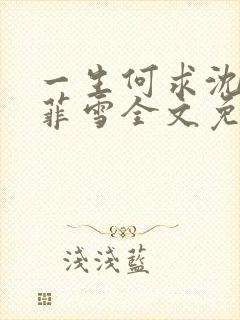 一生何求沈
菲雪全文免
淺淺藍